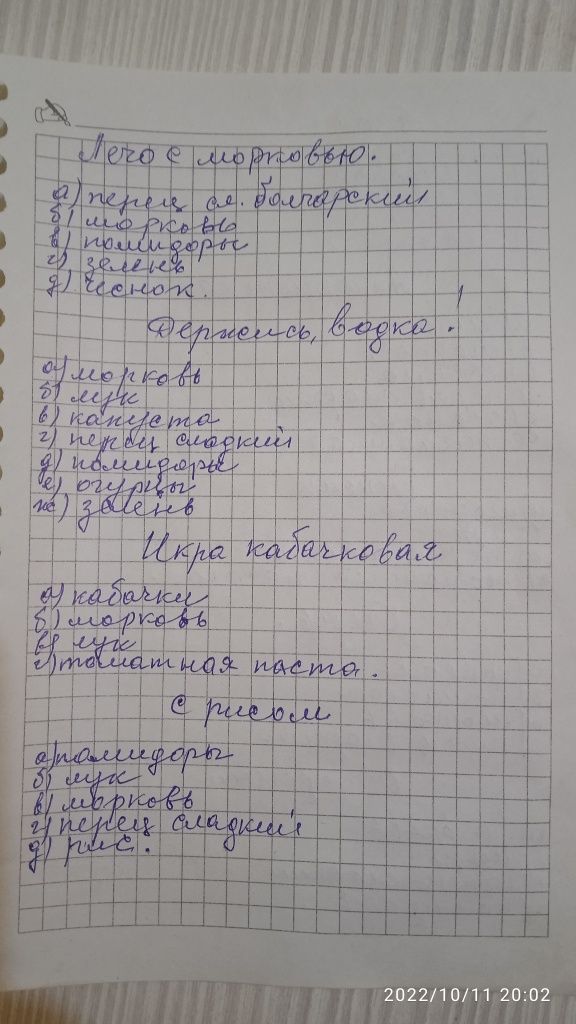 Лечо с морковью.
а) перец сл. болгарский
б) морковь
в) помидоры
г) зелень
д) чеснок.
Держись, водка!
а) морковь
б) лук
в) капуста
г) перец сладкий
д) помидоры
е) огурцы
ж) зелень
Икра кабачковая
а) кабачки
б) морковь
в) лук
г) томатная паста.
с рисом
а) помидоры
б) лук
в) морковь
г) перец сладкий
д) рис.
2022/10/11 20:02